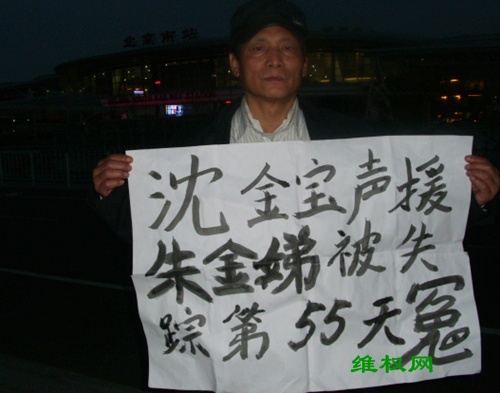 北京南站
沈金宝声援
朱金娣被失
踪第55天冤
维权网